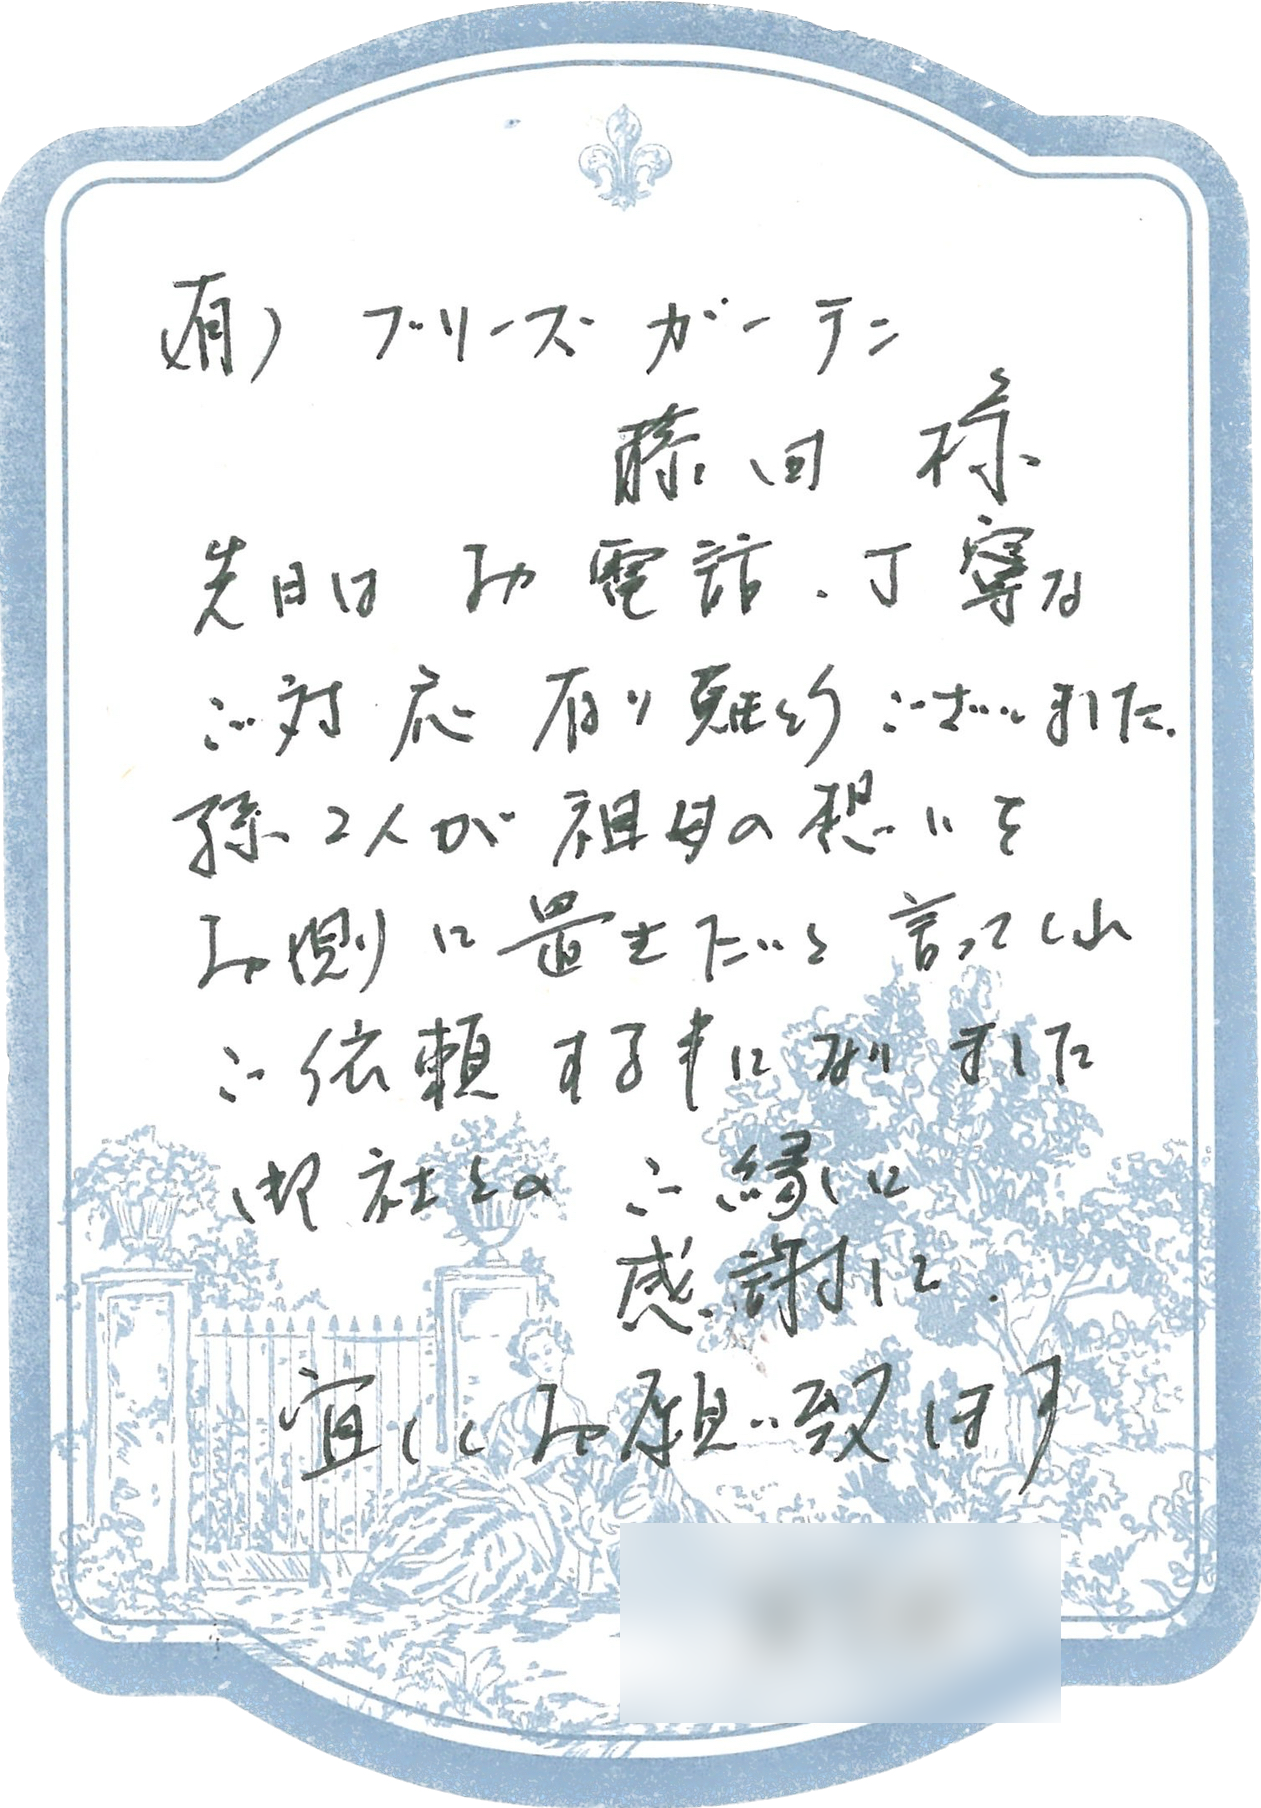 (有) ブリーズガーデン
藤田 様
先日は お電話、丁寧な
ご対応 有り難うございました。
孫2人が 祖母の想いを
お側に置きたいと言ってくれ
ご依頼する事になりました
御社との ご縁に
感謝して.
宜しくお願い致します